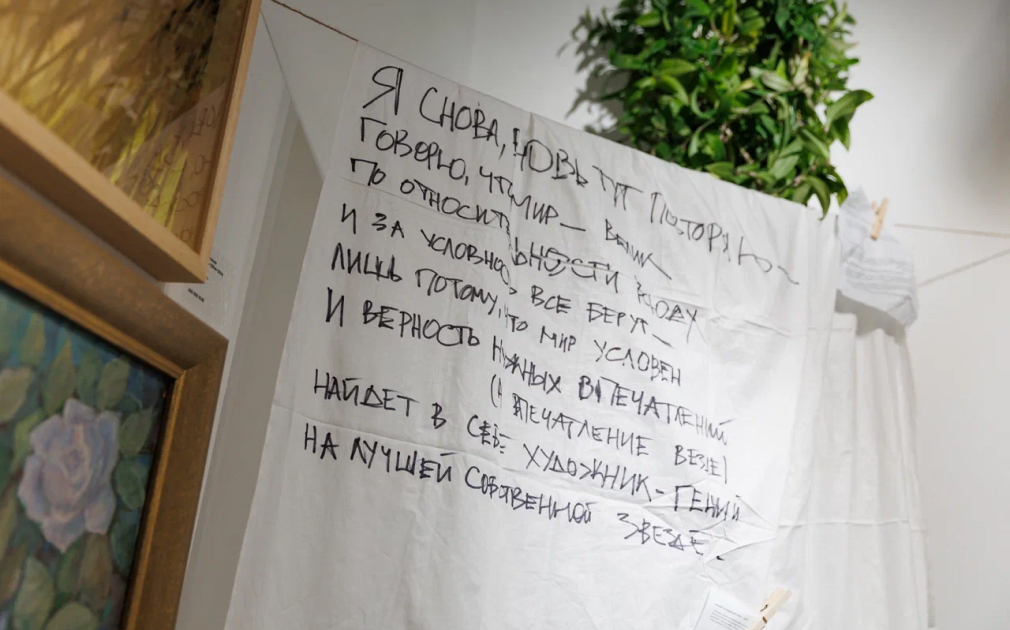 Я СНОВА, НОВЬ ТУТ ПОВТОРЯЮ
ГОВОРЮ, ЧТ МИР —
ПО ОТНОСИТЕЛЬНОСТИ ВСЮДУ
И ЗА УСЛОВНО ВСЕ БЕРУТ —
ЛИШЬ ПОТОМУ, ТО МИР УСЛОВЕН
И ВЕРНОСТЬ НУЖНЫХ ВПЕЧАТЛЕНИЙ
(А ВПЕЧАТЛЕНИЕ ВЕЗДЕ)
НАЙДЕТ В СЕБЕ ХУДОЖНИК - ГЕНИЙ
НА ЛУЧШЕЙ СОБСТВЕННОЙ ЗВЕЗДЕ.